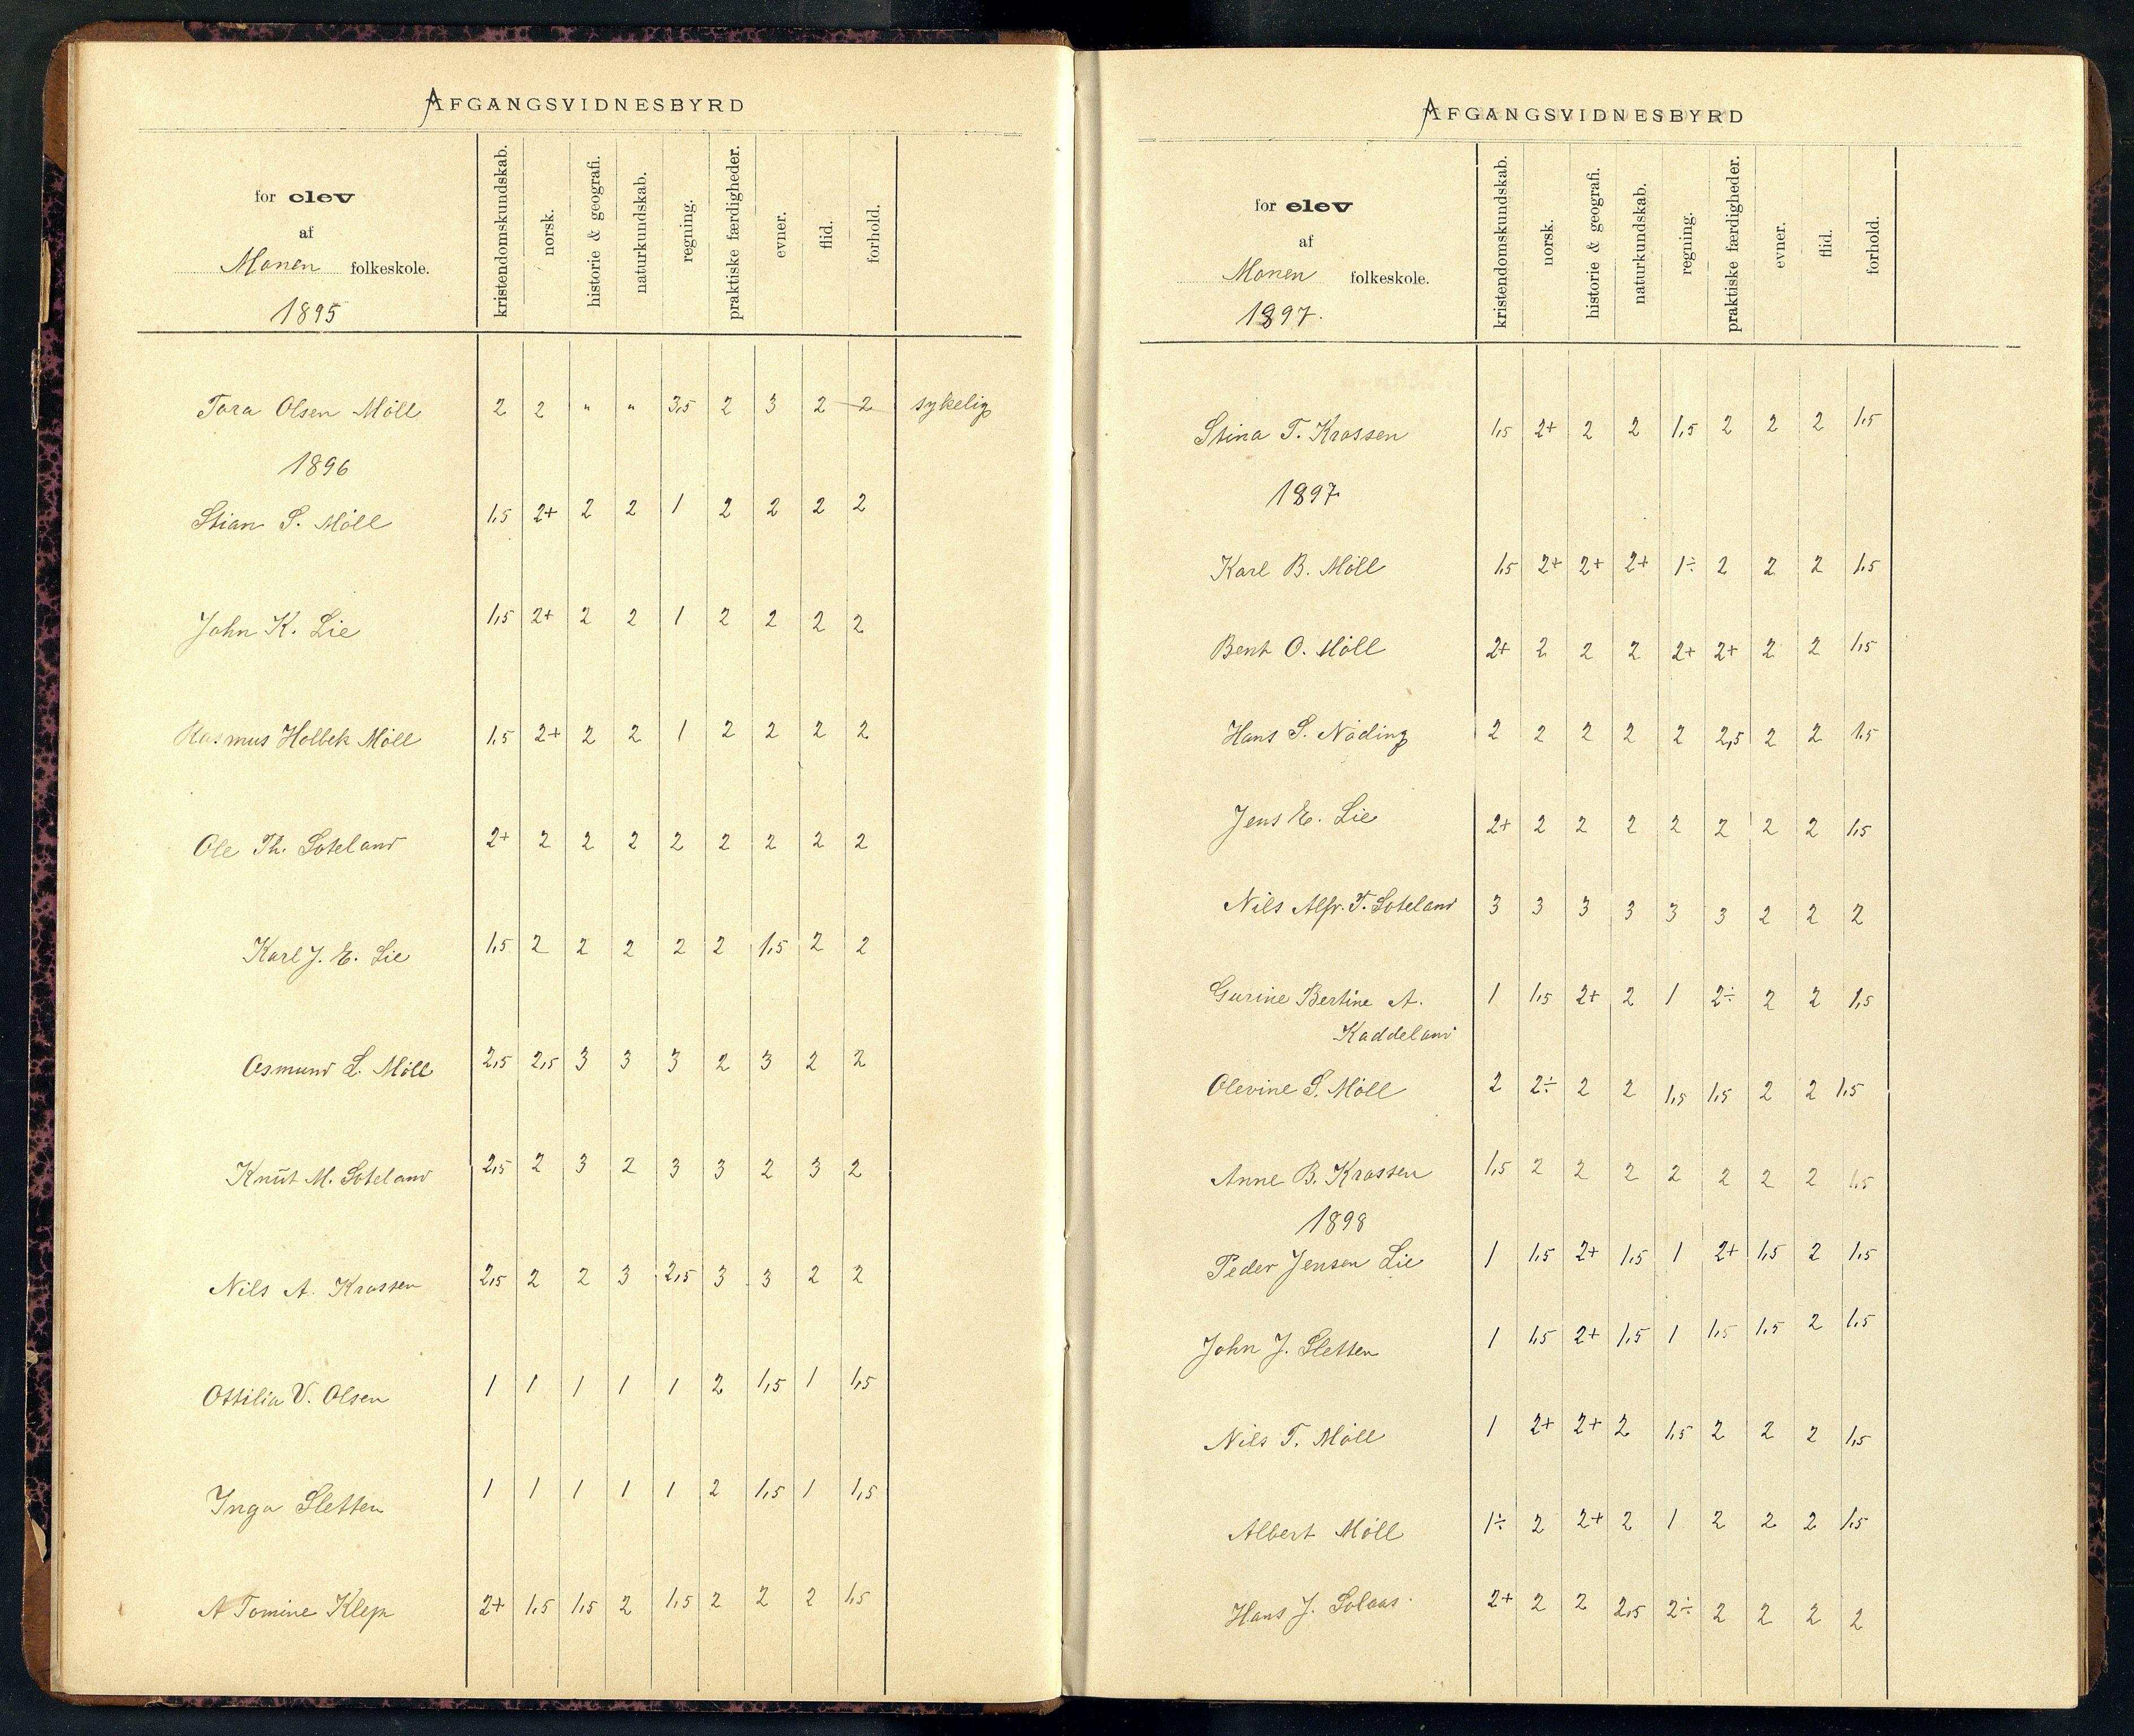 AFGANGSVIDNESBYRD
for elev
af
Monen folkeskole.
1895
kristendomskundskab. norsk. historie & geografi. naturkundskab. regning. praktiske færdigheder. evner. flid. forhold.
Tara Olsen Möll 2 2 " " 3,5 2 3 2 2 sykelig
1896
Stian S. Möll 1,5 2+ 2 2 1 2 2 2 2
John K. Lie 1,5 2+ 2 2 1 2 2 2 2
Rasmus Holbek Möll 1,5 2+ 2 2 1 2 2 2 2
Ole Th. Soteland 2+ 2 2 2 2 2 2 2 2
Karl J. E. Lie 1,5 2 2 2 2 2 1,5 2 2
Osmund L. Möll 2,5 2,5 3 3 3 2 3 2 2
Knut M. Soteland 2,5 2 3 2 3 3 2 3 2
Nils A. Krossen 2,5 2 2 3 2,5 3 3 2 2
Ottilia V. Olsen 1 1 1 1 1 2 1,5 1 1,5
Inga Sletten 1 1 1 1 1 2 1,5 1 1,5
A Tomine Klep 2+ 1,5 1,5 2 1,5 2 2 2 1,5
AFGANGSVIDNESBYRD
for elev
af
Monen folkeskole.
1897.
kristendomskundskab. norsk. historie & geografi. naturkundskab. regning. praktiske færdigheder. evner. flid. forhold.
Stina T. Krossen 1,5 2+ 2 2 1,5 2 2 2 1,5
1897
Karl B. Möll 1,5 2+ 2+ 2+ 1÷ 2 2 2 1,5
Bent O. Möll 2+ 2 2 2 2+ 2+ 2 2 1,5
Hans S. Nöding 2 2 2 2 2 2,5 2 2 1,5
Jens E. Lie 2+ 2 2 2 2 2 2 2 1,5
Nils Alfr. T. Soteland 3 3 3 3 3 3 2 2 2
Gurine Bertine A. 1 1,5 2+ 2 1 2÷ 2 2 1,5
Kaddeland
Olevine S. Möll 2 2÷ 2 2 1,5 1,5 2 2 1,5
Anne B. Krossen 1,5 2 2 2 2 2 2 2 1,5
1898
Peder Jensen Lie 1 1,5 2+ 1,5 1 2+ 1,5 2 1,5
John J. Sletten 1 1,5 2+ 1,5 1 1,5 1,5 2 1,5
Nils T. Möll 1 2+ 2+ 2 1,5 2 2 2 1,5
Albert Möll 1÷ 2 2+ 2 1 2 2 2 1,5
Hans J. Solaas. 2+ 2 2 2,5 2÷ 2 2 2 2